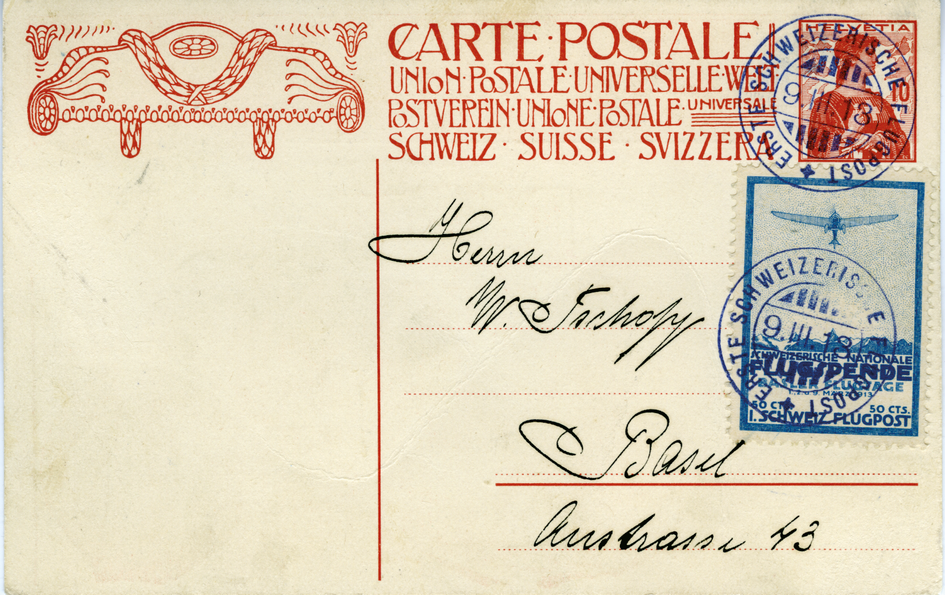 CARTE·POSTALE
UNION·POSTALE·UNIVERSELLE·WELT
POSTVEREIN·UNIONE·POSTALE·UNIVERSALE
SCHWEIZ·SUISSE·SVIZZERA
HELVETIA
10
ERSTE SCHWEIZERISCHE FLUGPOST
9.III.13
Herrn
W. Tschopp
Basel
Austrasse 43
ERSTE SCHWEIZERISCHE FLUGPOST
9.III.13
SCHWEIZERISCHE NATIONALE
FLUGSPENDE
BASLER FLUGTAGE
50 CTS. 50 CTS.
I. SCHWEIZ. FLUGPOST